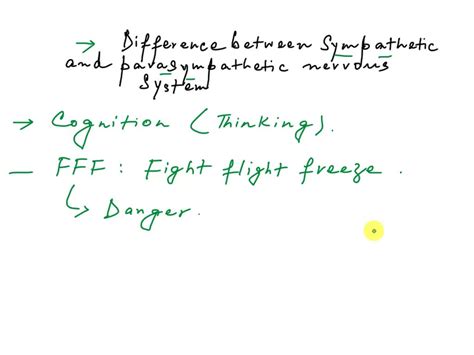 → Difference between Sympathetic
and parasympathetic nervous
System
→ Cognition (Thinking).
— FFF : Fight flight freeze.
↳ Danger.